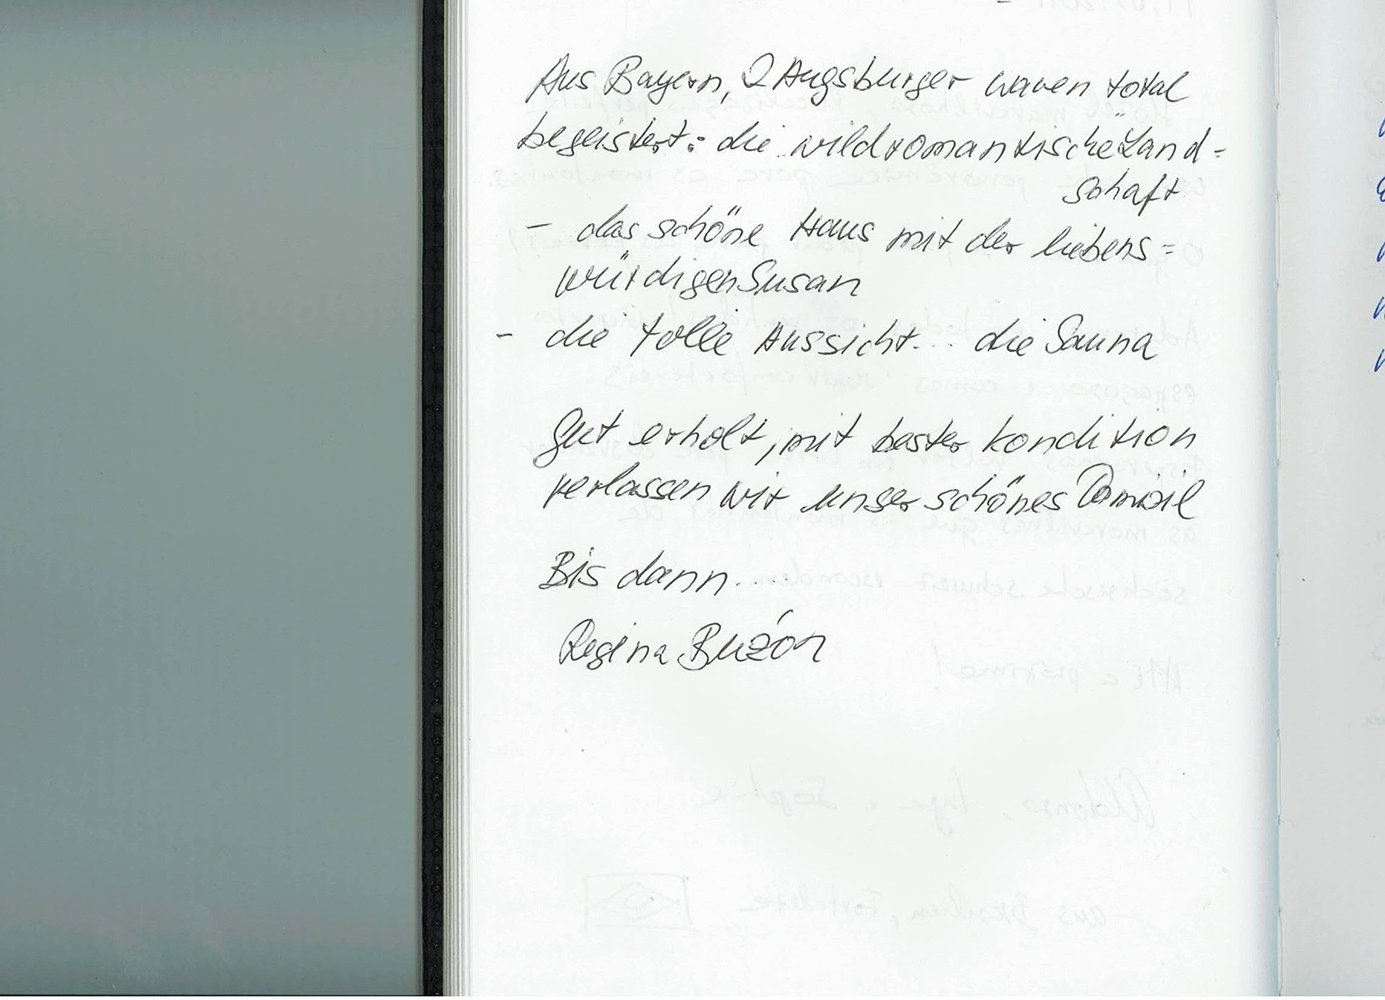 Aus Bayern, 2 Augsburger waren total
begeistert: die wildromantische Land=
schaft
- das schöne Haus mit der liebens=
würdigen Susan
- die tolle Aussicht... die Sauna
gut erholt, mit bester Kondition
verlassen wir unser schönes Domizil
Bis dann.
Regina Buzón